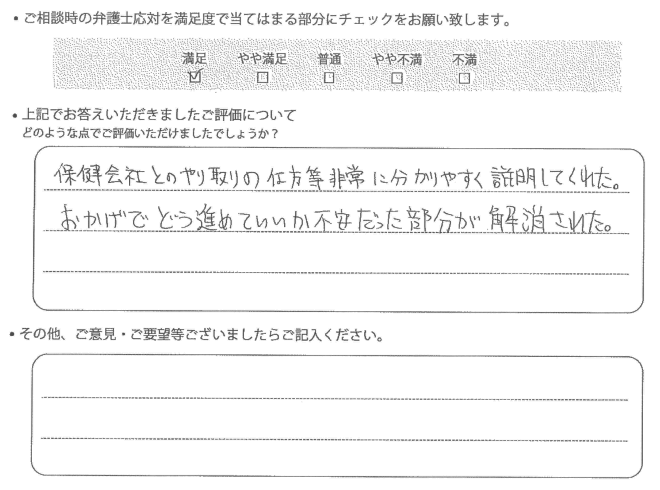 • ご相談時の弁護士応対を満足度で当てはまる部分にチェックをお願い致します。
満足 やや満足 普通 やや不満 不満
☑ □ □ □ □
• 上記でお答えいただきましたご評価について
どのような点でご評価いただけましたでしょうか？
保健会社とのやり取りの仕方等非常に分かりやすく説明してくれた。
おかげでどう進めていいか不安だった部分が解消された。
• その他、ご意見・ご要望等ございましたらご記入ください。